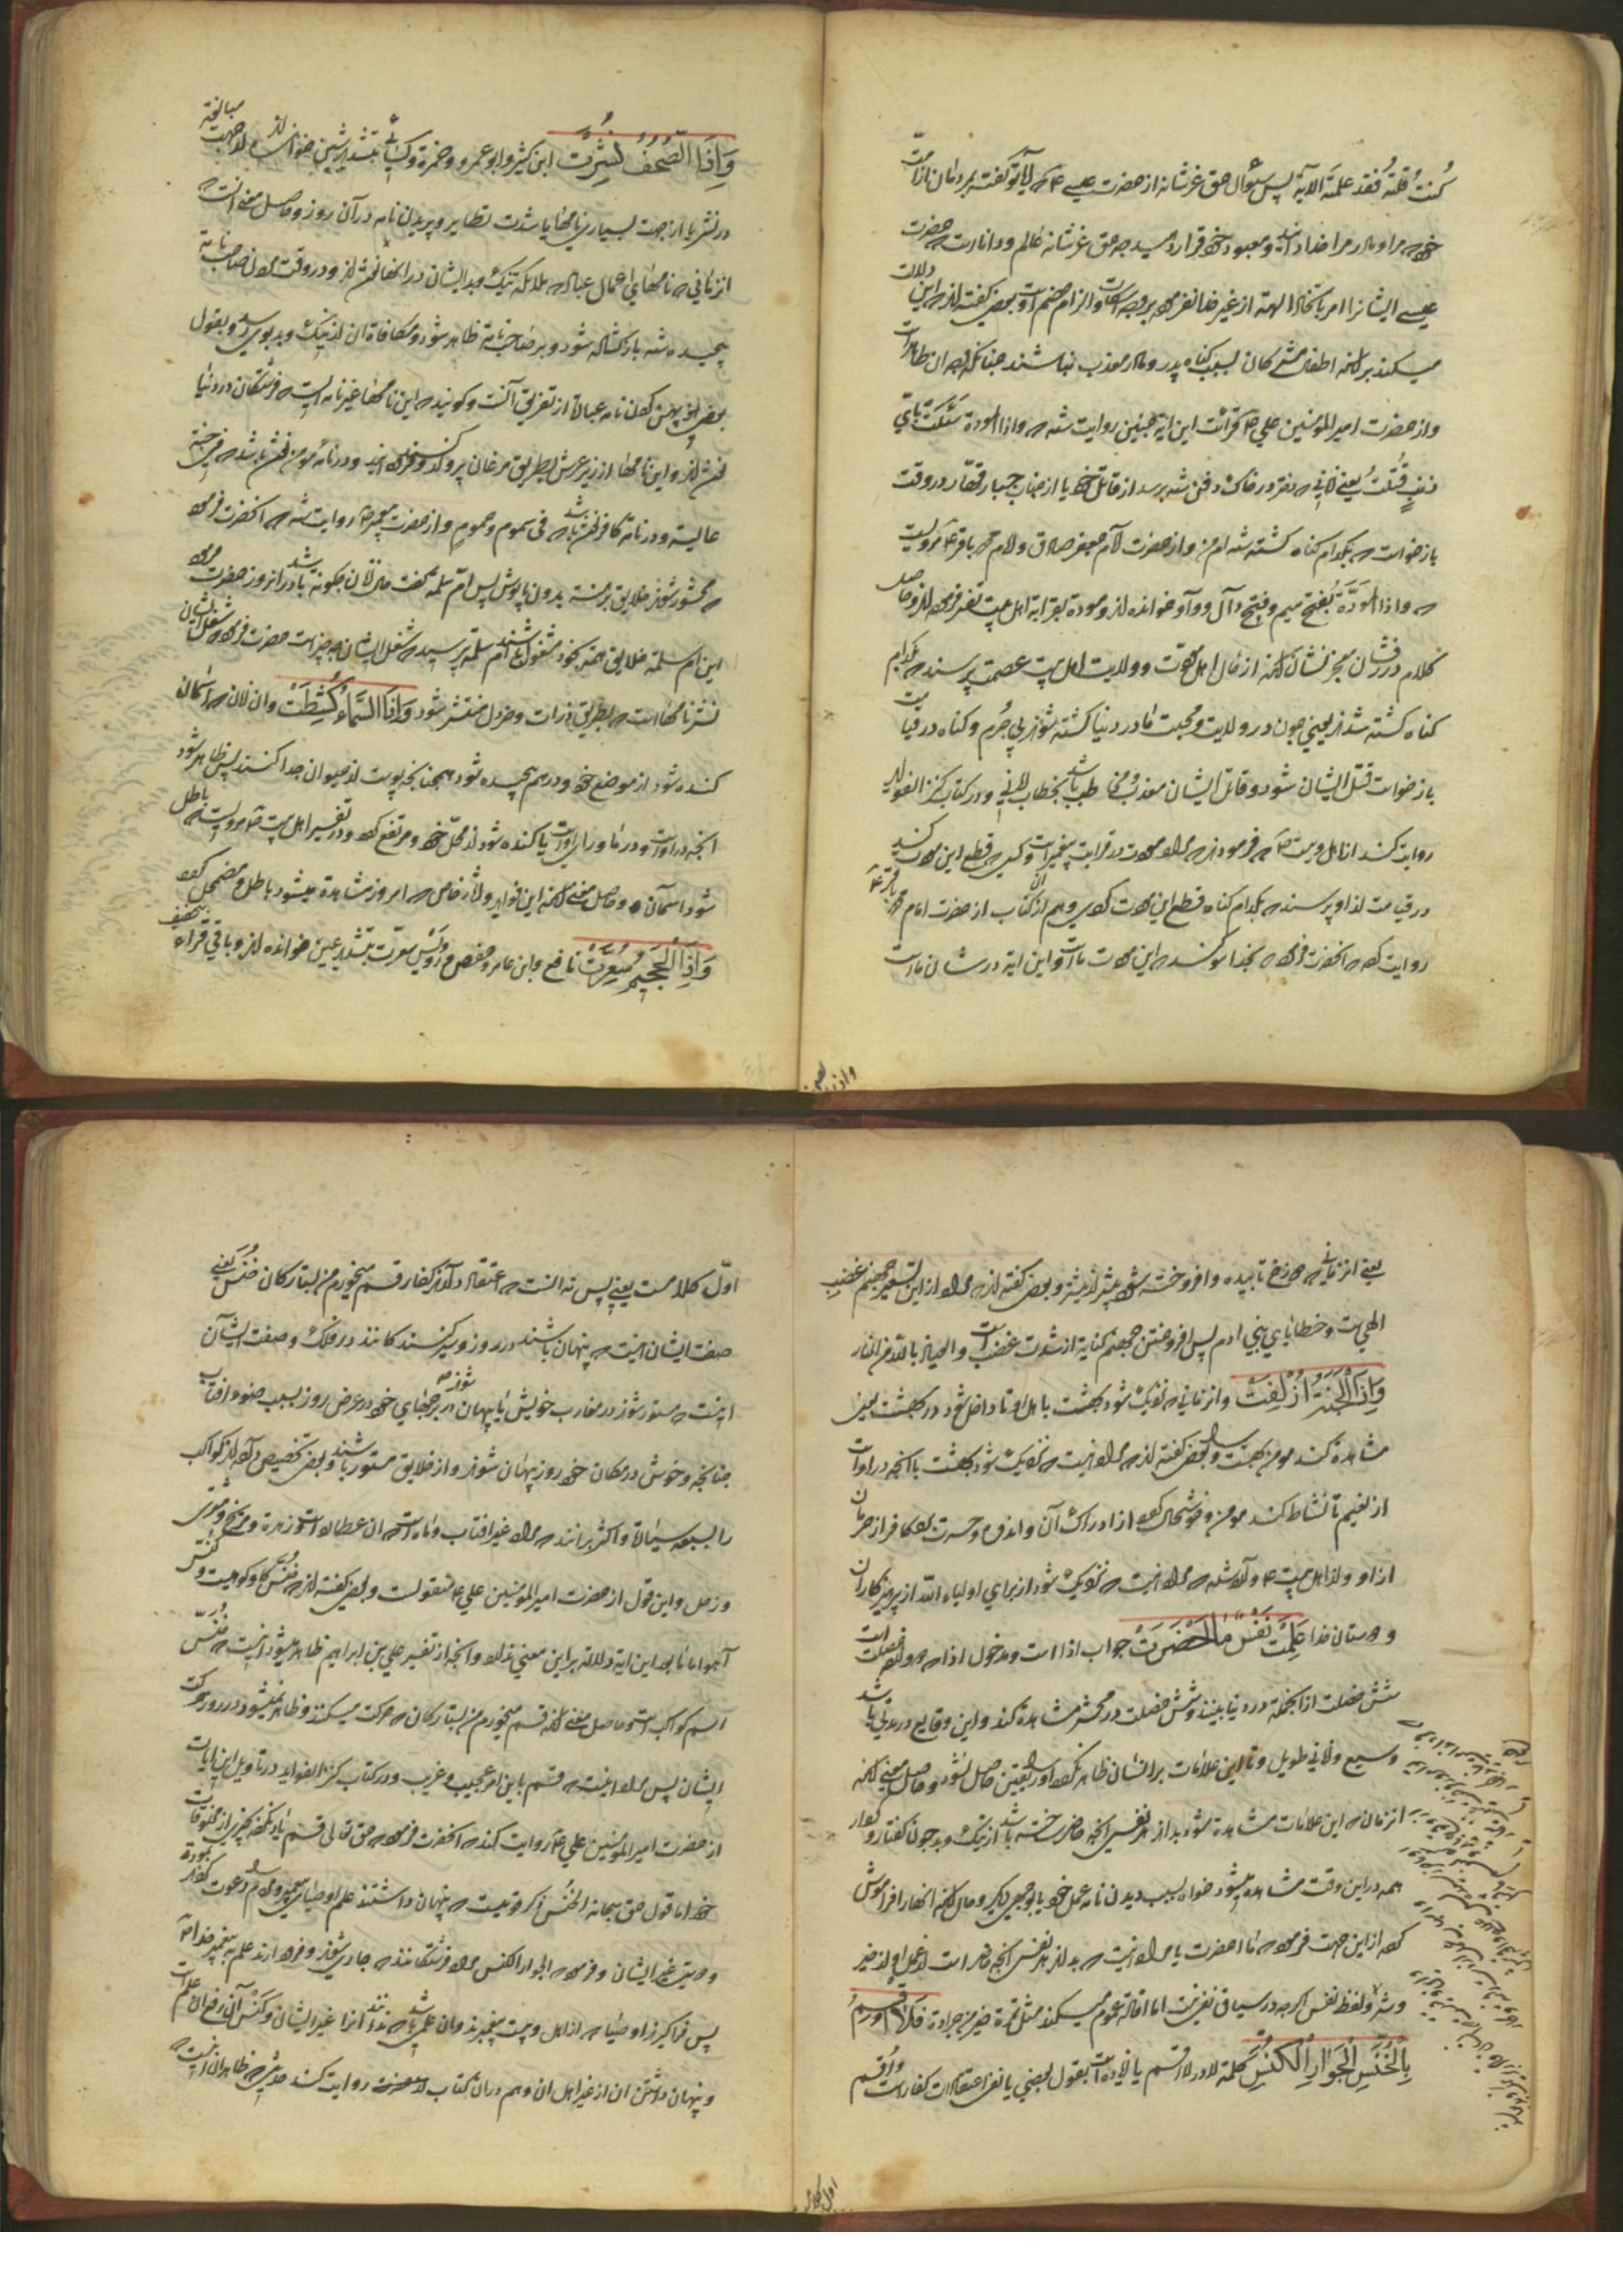 کنت قلته فقد علمته الآیة پس سؤال حق عزشانه از حضرت عیسی ع که آیا تو گفته بمردمان نازلست
که مرا و مادر مرا خدا دانید و معبود خود قرار دهید چه حق عزشانه عالم و داناست که حضرت
عیسی ایشانرا امر باتخاذ الهه از غیر خدا نفرموده بر وجه اسکات و الزام خصم است و بعضی گفته‌اند که این دلالت
میکند بر آنکه اطفال مشرکان بسبب گناه پدر و مادر معذب نباشند چنانکه وجه آن ظاهر است
و از حضرت امیر المؤمنین علی ع قرائت این آیة چنین روایت شده که و اذا الموءدة سَئَلَت بای
ذنبٍ قُتِلتُ یعنی زمانی که دختر در خاک دفن شده بپرسد از قاتل خود یا از جناب جبار قهار در وقت
بازخواست که بکدام گناه کشته شده‌ام من و از حضرت امام جعفر صادق و امام محمد باقر ع مرویست
که و اذا المَوَدَّة بفتح میم و فتح دال و واو خوانده‌اند و مودة بقرابة اهل بیت تفسیر فرموده‌اند و حاصل
کلام درفشان معجز نشان آنکه از حال اهل مودّت و ولایت اهل بیت عصمت پرسند که بکدام
گناه کشته شدند یعنی چون در ولایت و محبت ما در دنیا کشته شوند بی جُرم و گناه در قیامت
بازخواست قتل ایشان شود و قاتل ایشان معذب و مخاطب باشد بخطاب الهی و در کتاب کنز الفوائد
روایت کند از اهل بیت ع که فرمودند که مراد مودت در قرابت پیغمبر است و کسی که قطع این مودت کند
در قیامت از او پرسند که بکدام گناه قطع این مودت کردی و هم از آن کتاب از حضرت امام محمد باقر ع
روایت کرده که آنحضرت فرمود که بخدا سوگند که این مودت ماست و این آیة در شان ماست
واذا الصحف
وَاِذَا الصُّحُفُ نُشِرَت ابن کثیر و ابو عمرو و حمزة و کسائی بتشدید شین خوانده‌اند از جهت مبالغة
در نشر یا از جهت بسیاری نامها یا شدت تطایر و پریدن نامه در آن روز و حاصل معنی آنست که
از زمانی که نامهای اعمال عباد که ملائکه نیک و بد ایشان در آنها نوشته‌اند و در وقت مردن صاحب نامه
پیچیده شده باز گشاده شود و بر صاحب نامه ظاهر شود و مکافاة آن از نیک و بد بوی رسد و بقول
بعضی پهن کردن نامه عبارة از تفریق آنست و گویند که این نامها غیر نامه ایست که فرشتگان در دنیا
نوشته‌اند و این نامها از زیر عرش بطریق مرغان پرواز کند و متفرق شوند و در نامه مؤمن نوشته باشد که فی جنة
عالیة و در نامه کافر نوشته باشد که فی سموم و حمیم و از حضرت پیغمبر ص روایت شده که آنحضرت فرمود
که محشور شوند خلایق برهنه بدون پاپوش پس ام سلمه گفت حال زنان چگونه باشد در آنروز حضرت فرمود
ای ام سلمة خلایق همه بخود مشغول باشند ام سلمة پرسید که شغل ایشان بچه چیز است حضرت فرمود که شغل ایشان
نشر نامها است که بطریق ذرات و خردل منتشر شود وَاِذَا السَّمَاءُ کُشِطَتْ و آن زمان که آسمان
کنده شود از موضع خود و درهم پیچیده شود همچنانچه پوست از حیوان جدا کنند پس ظاهر شود
آنچه در او است و در ماورای او است یا کنده شود از محل خود و مرتفع گردد و در تفسیر اهل بیت ع مرویست که باطل
شود آسمان و حاصل معنی آنکه این فواید و آثار خاص که امروز مشاهدة میشود باطل و مضمحل گردد
وَاِذَا الْجَحِیمُ سُعِّرَتْ نافع و ابن عامر و حفص و رویس سعرت بتشدید عین خوانده‌اند و باقی قراء بتخفیف
یعنی از زمانی که دوزخ تابیده و افروخته شود بیشتر از پیشتر و بعضی گفته‌اند که مراد از این تسعیر جهنم غضب
الهی است و خطایای بنی ادم پس افروختن جهنم کنایة از شدت غضب است و العیاذ بالله من النار
وَاِذَا الْجَنَّةُ اُزْلِفَتْ و از زمانی که نزدیک شود بهشت باهل او تا داخل شود در بهشت یعنی
مشاهدة کند مومن بهشت را و بعضی گفته‌اند که مراد اینست که نزدیک شود بهشت با آنچه در او است
از نعیم تا نشاط کند مومن و خوشحال گردد از ادراک آن و اندوه و حسرت برد کافر از حرمان
از او و از اهل بیت ع وارد شده که مراد اینست که نزدیک شود از برای اولیاء الله از پرهیزکاران
و دوستان خدا عَلِمَتْ نَفْسٌ مَا اَحْضَرَتْ جواب اذا است و مدخول اذا که دوازده خصلت است
شش خصلت از آنجمله در دنیا بینند و شش خصلت در محشر مشاهدة کنند و این وقایع در مدتی باشد
وسیع و زمانی طویل و تا این علامات بر انسان ظاهر نگردد او را یقین حاصل نشود و حاصل معنی آنکه
از زمانی که این علامات مشاهدة شود بداند هر نفسی آنچه حاضر ساخته باشد از نیک و بد چون گفتار و کردار
همه در این وقت مشاهده میشود خواه بسبب دیدن نامه عمل خود یا بوجهی دیگر و حال آنکه آنها را فراموش
کرده از این جهت فرموده که ما احضرت یا مراد اینست که بداند هر نفسی آنچه حاضر است از عمل او از خیر
و شر و لفظ نفس اگرچه در سیاق نفی نیست اما افاده عموم میکند مثل تمرة خیر من جرادة فَلَا اُقْسِمُ
بِالْخُنَّسِ الْجَوَارِ الْکُنَّسِ کلمة لا در لا اقسم یا زیاده است بقول بعضی یا نفی اعتقادات کفار است و اقسم
اول کلام
اوّل کلامست یعنی پس نه آنست که اعتقاد دارند کفار قسم میخورم من بستارکان خُنّس یعنی
صفت ایشان اینست که پنهان باشند در روز و سیر کنند کانند در فلک و صفت ایشان
اینست که مستور شوند در مغارب خویش یا پنهان شوند در برجهای خود در عرض روز بسبب ضوء افتاب
چنانچه وحوش در مکان خود روز پنهان شوند و از خلایق مستور باشند و بعضی تخصیص داده‌اند کواکب
را بسبعه سیاره و اکثر برانند که مراد غیر افتاب و ماه است که آن عطارد است و زهرة و مریخ و مشتری
و زحل و این قول از حضرت امیر المؤمنین علی ع منقولست و بعضی گفته‌اند که خنّس گاو کوهیست و کنّس
آهو اما مابعد این ایة دلالة بر این معنی ندارد و آنچه از تفسیر علی بن ابراهیم ظاهر میشود اینست که خنّس
اسم کواکب است و حاصل معنی آنکه قسم میخورم من بستارکان که حرکت میکنند و ظاهر نمیشود در روز حرکت
ایشان پس مراد اینست که قسم باین امر عجیب و غریب و در کتاب کنز الفوائد در تاویل این ایات
از حضرت امیر المؤمنین علی ع روایت کند که آنحضرت فرمود که حق تعالی قسم یاد نکرده بچیزی از مخلوقات
خود اما قول حق سبحانه الخنّس ذکر قومیست که پنهان داشتند علم اوصیای پیغمبر و مردم را دعوت کردند بمودة
و دوستی غیر ایشان و فرموده الجوار الکنس مراد فرشتگانند که جاری شوند و فرود ارند علم به پیغمبر خدا ص
پس فرا گیرند اوصیا که از اهل بیت پیغمبرند و آن علمی باشد که ندانند آنرا غیر ایشان و کنّس آن رفع آن علم است
و پنهان داشتن آن از غیر اهل آن و هم در آن کتاب روایت کند حدیثی که ظاهر آن اینست که